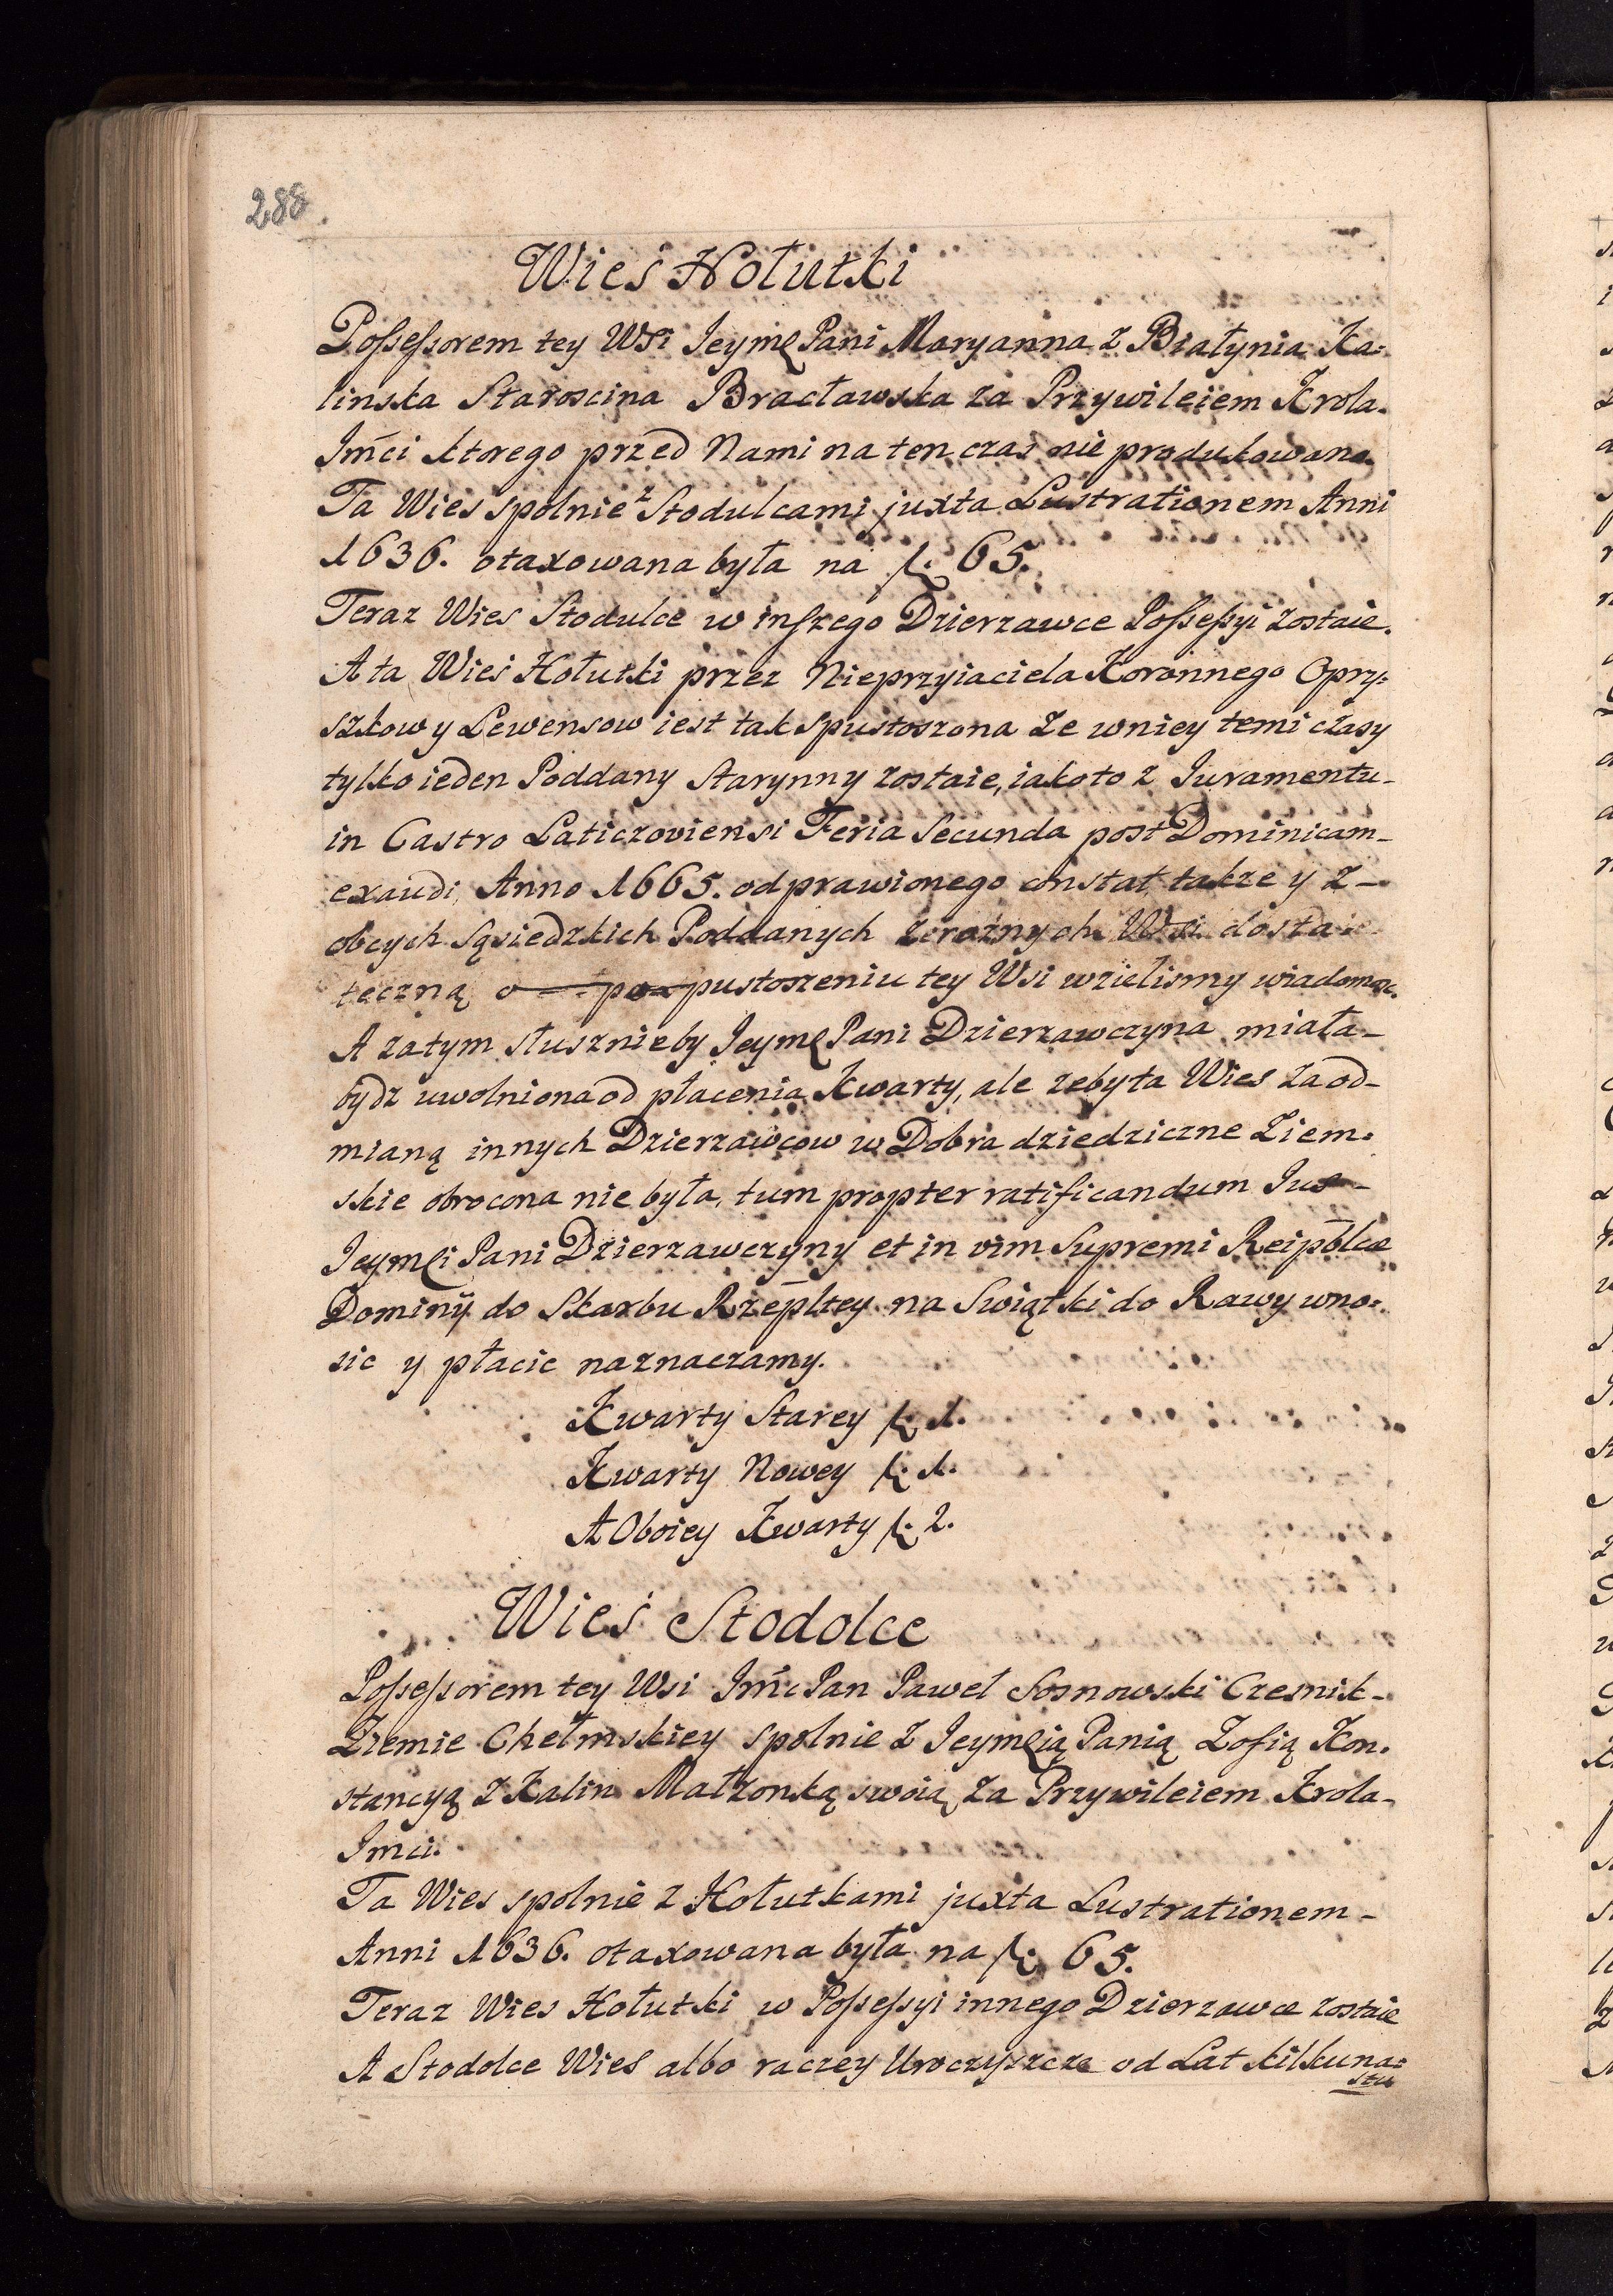 288.
Wieś Hołutki
Possessorem tey Wsi Jeymę Pani Maryanna z Białynia Ka=
linska Staroscina Bracławska za Przywileiem Krola-
Jmći ktorego przed Nami na ten czas nie produkowano.
Ta Wies spolnie z Stodulcami juxta Lustrationem Anni
1636. otaxowana była na f. 65.
Teraz Wies Stodulce w inszego Dzierzawce Possessyi zostaie.
A ta Wieś Hołutki przez Nieprzyiaciela Koronnego Opry=
szkow y Lewensow iest tak spustoszona ze wniey temi czasy
tylko ieden Poddany Starynny zostaie, iako to z Juramentu-
in Castro Laticzoviensi Feria Secunda post Dominicam-
exaudi, Anno 1665. odprawionego constat, takze y z-
obcych sąsiedzkich Poddanych z roznych Wsi dosta=
teczną o pustoszeniu tey Wsi wzielismy wiadomosc.
A zatym słusznieby Jeymę Pani Dzierzawczyna miała-
bydz uwolniona od płacenia Kwarty, ale zeby ta Wies za od-
mianą innych Dzierzawcow w Dobra dziedziczne Ziem=
skie obrocona nie była, tum propter ratificandum Jus-
Jeymći Pani Dzierzawczyny et in vim Supremi Reipblcæ
Dominij do Skarbu Rzepltey na Swiątki do Rawy wno=
sic y płacic naznaczamy.
Kwarty Starey f. 1.
Kwarty Nowey f. 1.
A Oboiey Kwarty f. 2.
Wieś Stodolce
Possessorem tey Wsi Jmć Pan Paweł Sosnowski Czesnik-
Ziemie Chełmskiey spolnie z Jeymcią Panią Zofią Kon=
stancyą z Kalin Małzonką swoią za Przywileiem Krola-
Jmci.
Ta Wies spolnie z Hołutkami juxta Lustrationem-
Anni 1636. otaxowana była na f. 65.
Teraz Wies Hołutki w Possessyi innego Dzierzawce zostaie
A Stodolce Wieś albo raczey Uroczyszcze od Lat kilkuna=
stu